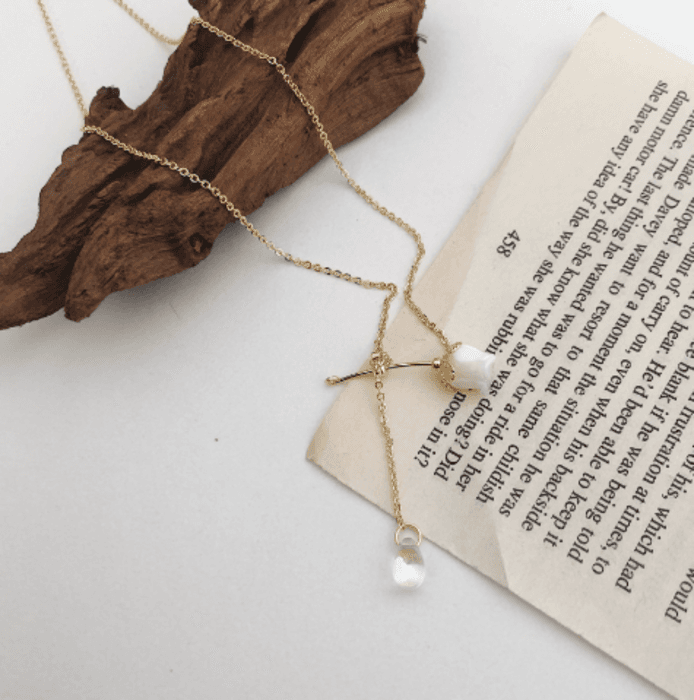 would
his, which had
frustration at times, to
blank if he was being told
to hear. He'd been able to keep it
of carry on, even when his backside
and for a moment the situation he was
made Davey want to resort to that same childish
The last thing he wanted was to go for a ride in her
damn motor car! By, did she know what she was doing? Did
she have any idea of the way she was nose in it?
458